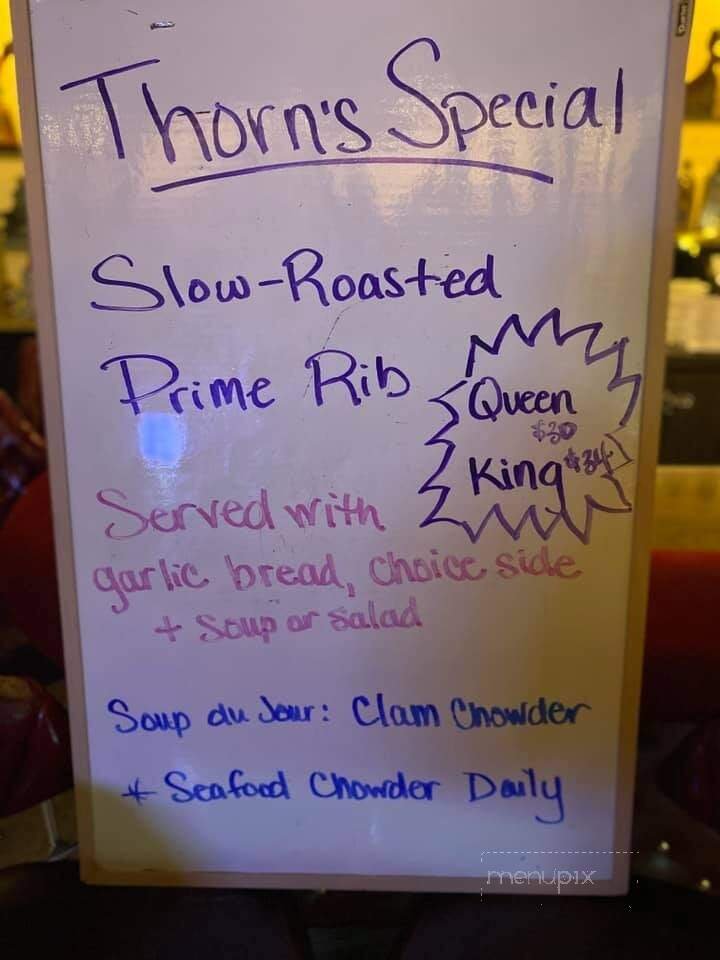 Thorn's Special
Slow-Roasted
Prime Rib
Queen
$30
King $34
Served with
garlic bread, choice side
+ Soup or salad
Soup du Jour: Clam Chowder
* Seafood Chowder Daily
menupix